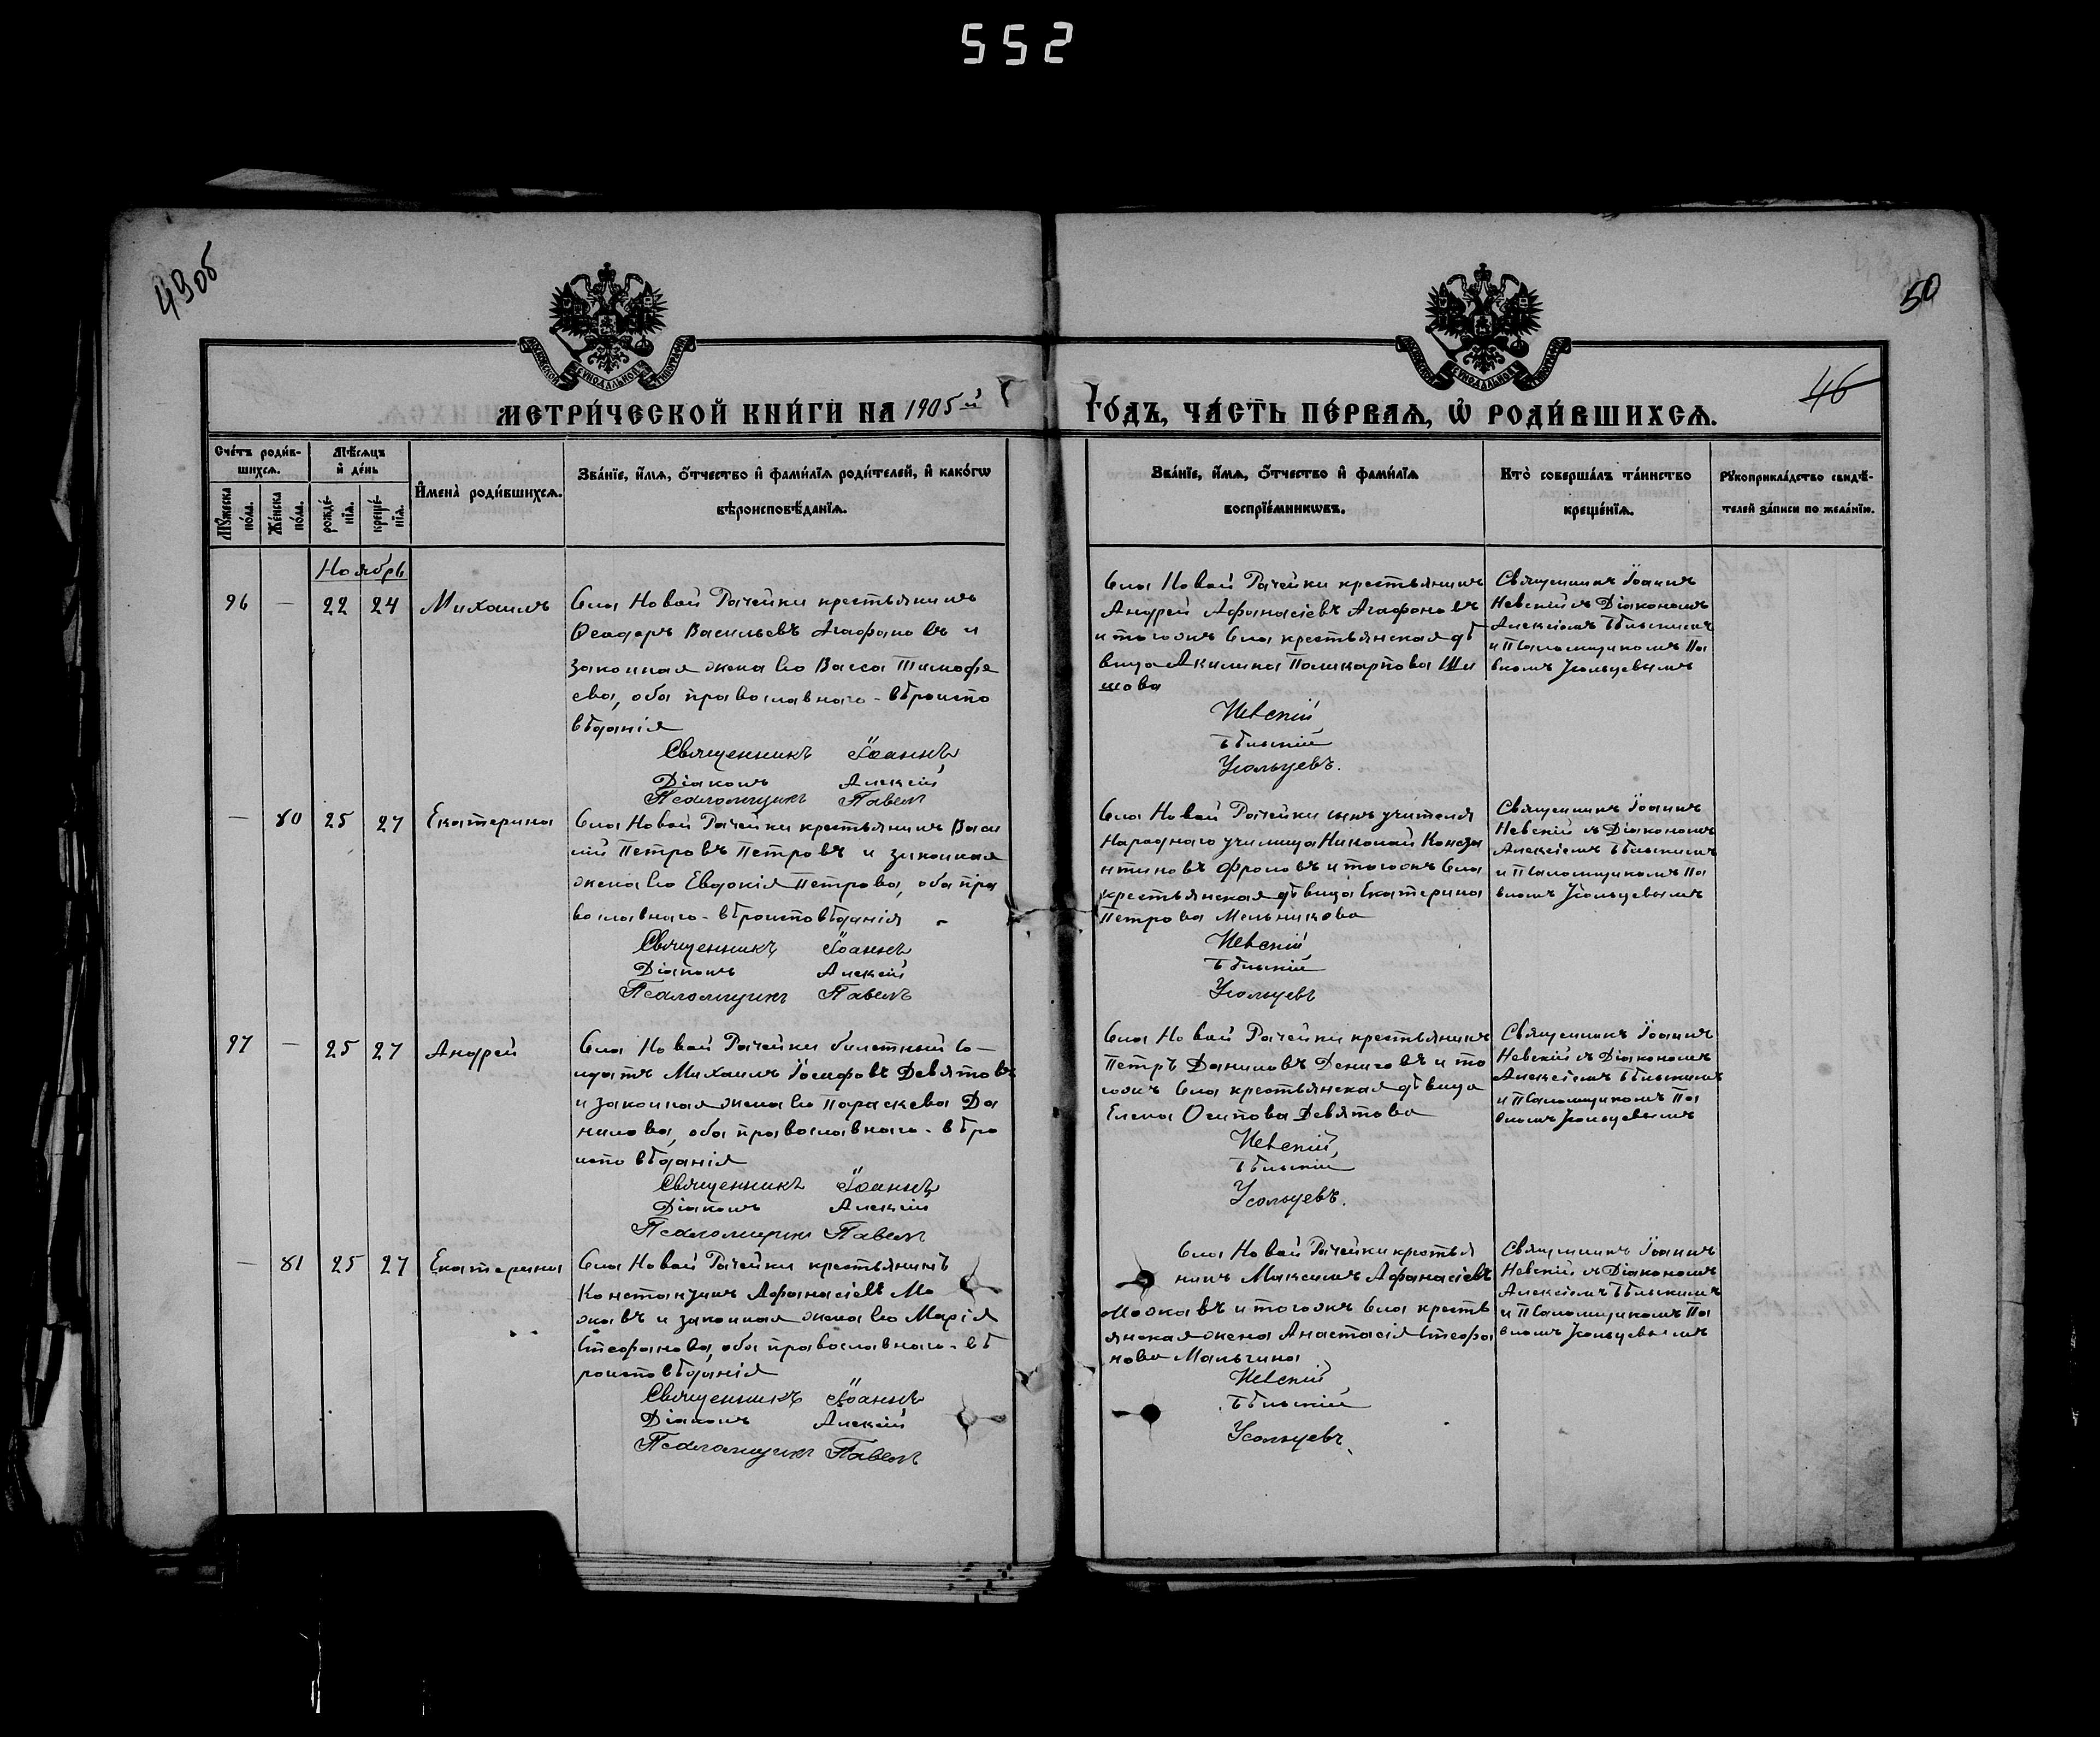 552
49об
50
46
МЕТРИ́ЧЕСКОЙ КНИ́ГИ НА 1905й ГО́ДЪ, ЧА́СТЬ ПЕ́РВАЯ, Ѡ РОДИ́ВШИХСЯ.
Сче́тъ роди́в-
шихся.
Мѣ́сяцъ
и҆ де́нь
Мꙋ́жеска
по́ла.
Же́нска
по́ла.
рожде́-
нїя.
креще́-
нїя.
И҆мена̀ роди́вшихся.
Зва́нїе, и҆́мя, ѻ҆́тчество и҆ фами́лїя роди́телей, и҆ како́гѡ
вѣроисповѣ́данїя.
Зва́нїе, и҆́мя, ѻ҆́тчество и҆ фами́лїя
воспрїе́мникѡвъ.
Кто̀ соверша́лъ та́инство
креще́нїя.
Рꙋкоприкла́дство свидѣ́-
телей за́писи по жела́нїю.
Ноябрь
96 — 22 24 Михаилъ
Села Новой Рачейки крестьянинъ
Ѳеодоръ Васильевъ Агафоновъ и
законная жена его Васса Тимофе
ева, оба православнаго-вѣроиспо
вѣданія
Священникъ Іоаннъ
Діаконъ Алексій
Псаломщикъ Павелъ
Села Новой Рачейки крестьянинъ
Андрей Афанасіевъ Агафоновъ
и тогожъ села крестьянская дѣ
вица Акилина Поликарпова Ши
шова
Невскій
Бѣльскій
Усольцевъ.
Священникъ Іоаннъ
Невскій съ Діакономъ
Алексіемъ Бѣльскимъ
и Псаломщикомъ Па
вломъ Усольцевымъ
— 80 25 27 Екатерина
Села Новой Рачейки крестьянинъ Васи
лій Петровъ Петровъ и законная
жена его Евдокія Петрова, оба пра
вославнаго-вѣроисповѣданія
Священникъ Іоаннъ
Діаконъ Алексій
Псаломщикъ Павелъ
Села Новой Рачейки сынъ учителя
Народнаго училища Николай Конста
нтиновъ Фроловъ и тогожъ села
крестьянская дѣвица Екатерина
Петрова Мельникова
Невскій
Бѣльскій
Усольцевъ
Священникъ Іоаннъ
Невскій съ Діакономъ
Алексіемъ Бѣльскимъ
и Псаломщикомъ Па
вломъ Усольцевымъ
97 — 25 27 Андрей
Села Новой Рачейки билетный со-
лдатъ Михаилъ Іосифовъ Девятовъ
и законная жена его Параскева Да
нилова, оба православнаго-вѣро
исповѣданія
Священникъ Іоаннъ
Діаконъ Алексій
Псаломщикъ Павелъ
Села Новой Рачейки крестьянинъ
Петръ Даниловъ Денисовъ и то
гожъ села крестьянская дѣвица
Елена Осипова Девятова
Невскій
Бѣльскій
Усольцевъ.
Священникъ Іоаннъ
Невскій съ Діакономъ
Алексіемъ Бѣльскимъ
и Псаломщикомъ Па
вломъ Усольцевымъ
— 81 25 27 Екатерина
Села Новой Рачейки крестьянинъ
Константинъ Афанасіевъ Мо
жавъ и законная жена его Марія
Стефанова, оба православнаго-вѣ
роисповѣданія
Священникъ Іоаннъ
Діаконъ Алексій
Псаломщикъ Павелъ
Села Новой Рачейки крестья
нинъ Максимъ Афанасіевъ
Можавъ и тогожъ села кресть
янская жена Анастасія Стефа
нова Мальгина
Невскій
Бѣльскій
Усольцевъ
Священникъ Іоаннъ
Невскій съ Діакономъ
Алексіемъ Бѣльскимъ
и Псаломщикомъ Па
вломъ Усольцевымъ